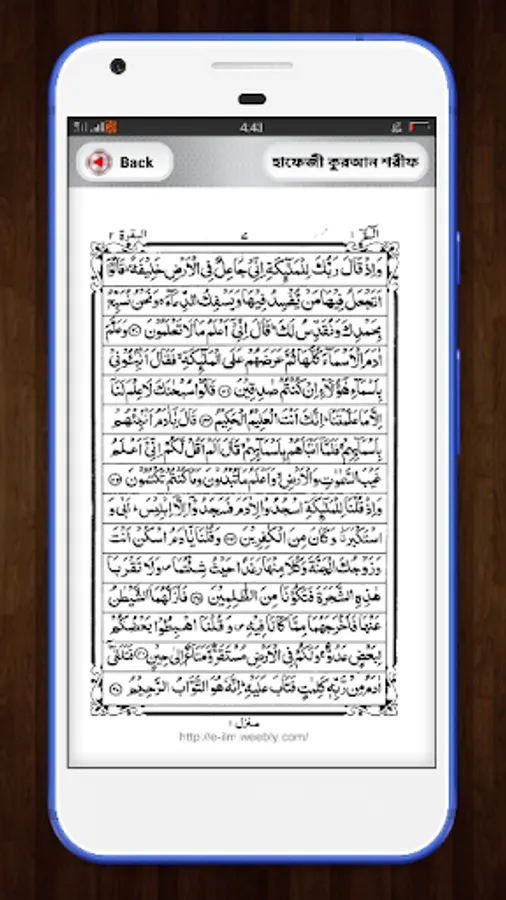 4:43
Back
হাফেজী কুরআন শরীফ
البقرة ٢
٧
الٓمّ ١
وَاِذْ قَالَ رَبُّكَ لِلْمَلٰٓئِكَةِ اِنِّیْ جَاعِلٌ فِی الْاَرْضِ خَلِیْفَةً ؕ قَالُوْۤا
اَتَجْعَلُ فِیْهَا مَنْ یُّفْسِدُ فِیْهَا وَیَسْفِكُ الدِّمَآءَ ۚ وَنَحْنُ نُسَبِّحُ
بِحَمْدِكَ وَنُقَدِّسُ لَكَ ؕ قَالَ اِنِّیْۤ اَعْلَمُ مَا لَا تَعْلَمُوْنَ ﴿۳۰﴾ وَعَلَّمَ
اٰدَمَ الْاَسْمَآءَ كُلَّهَا ثُمَّ عَرَضَهُمْ عَلَی الْمَلٰٓئِكَةِ ۙ فَقَالَ اَنْۢبِـُٔوْنِیْ
بِاَسْمَآءِ هٰۤؤُلَآءِ اِنْ كُنْتُمْ صٰدِقِیْنَ ﴿۳۱﴾ قَالُوْا سُبْحٰنَكَ لَا عِلْمَ لَنَاۤ
اِلَّا مَا عَلَّمْتَنَا ؕ اِنَّكَ اَنْتَ الْعَلِیْمُ الْحَكِیْمُ ﴿۳۲﴾ قَالَ یٰۤاٰدَمُ اَنْۢبِئْهُمْ
بِاَسْمَآئِهِمْ ۚ فَلَمَّاۤ اَنْۢبَاَهُمْ بِاَسْمَآئِهِمْ ۙ قَالَ اَلَمْ اَقُلْ لَّكُمْ اِنِّیْۤ اَعْلَمُ
غَیْبَ السَّمٰوٰتِ وَالْاَرْضِ ۙ وَاَعْلَمُ مَا تُبْدُوْنَ وَمَا كُنْتُمْ تَكْتُمُوْنَ ﴿۳۳﴾
وَاِذْ قُلْنَا لِلْمَلٰٓئِكَةِ اسْجُدُوْا لِاٰدَمَ فَسَجَدُوْۤا اِلَّاۤ اِبْلِیْسَ ؕ اَبٰی وَ
اسْتَكْبَرَ ٭ۗ وَكَانَ مِنَ الْكٰفِرِیْنَ ﴿۳۴﴾ وَقُلْنَا یٰۤاٰدَمُ اسْكُنْ اَنْتَ
وَزَوْجُكَ الْجَنَّةَ وَكُلَا مِنْهَا رَغَدًا حَیْثُ شِئْتُمَا ۪ وَلَا تَقْرَبَا
هٰذِهِ الشَّجَرَةَ فَتَكُوْنَا مِنَ الظّٰلِمِیْنَ ﴿۳۵﴾ فَاَزَلَّهُمَا الشَّیْطٰنُ
عَنْهَا فَاَخْرَجَهُمَا مِمَّا كَانَا فِیْهِ ۪ وَقُلْنَا اهْبِطُوْا بَعْضُكُمْ
لِبَعْضٍ عَدُوٌّ ۚ وَلَكُمْ فِی الْاَرْضِ مُسْتَقَرٌّ وَّمَتَاعٌ اِلٰی حِیْنٍ ﴿۳۶﴾ فَتَلَقّٰۤی
اٰدَمُ مِنْ رَّبِّهٖ كَلِمٰتٍ فَتَابَ عَلَیْهِ ؕ اِنَّهٗ هُوَ التَّوَّابُ الرَّحِیْمُ ﴿۳۷﴾
منزل ١
http://e-ilm.weebly.com/